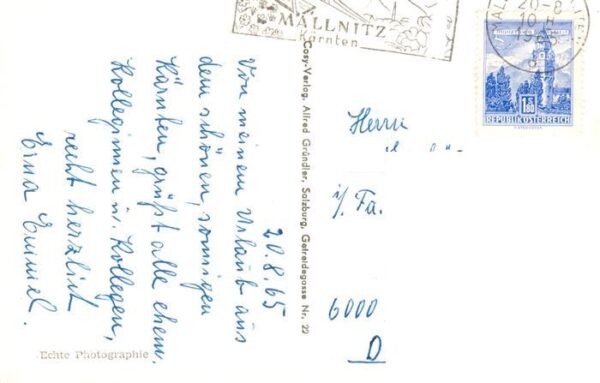 MALLNITZ
Kärnten
20-8
10 H
1965
1.80
REPUBLIK ÖSTERREICH
20.8.65
Von meinem Urlaub aus
dem schönen, sonnigen
Kärnten, grüßt alle ehem.
Kolleginnen u. Kollegen,
recht herzlich
Erna Emmel.
Echte Photographie
Cosy-Verlag, Alfred Gründler, Salzburg, Getreidegasse Nr. 22
Herrn
i/Fa.
6000
D